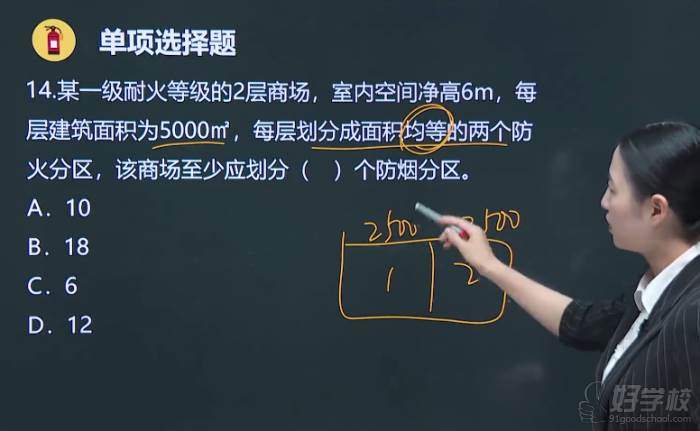 单项选择题
14.某一级耐火等级的2层商场，室内空间净高6m，每
层建筑面积为5000㎡，每层划分成面积均等的两个防
火分区，该商场至少应划分（　）个防烟分区。
A．10
B．18
C．6
D．12
2500 2500
1 2
好学校
91goodschool.com